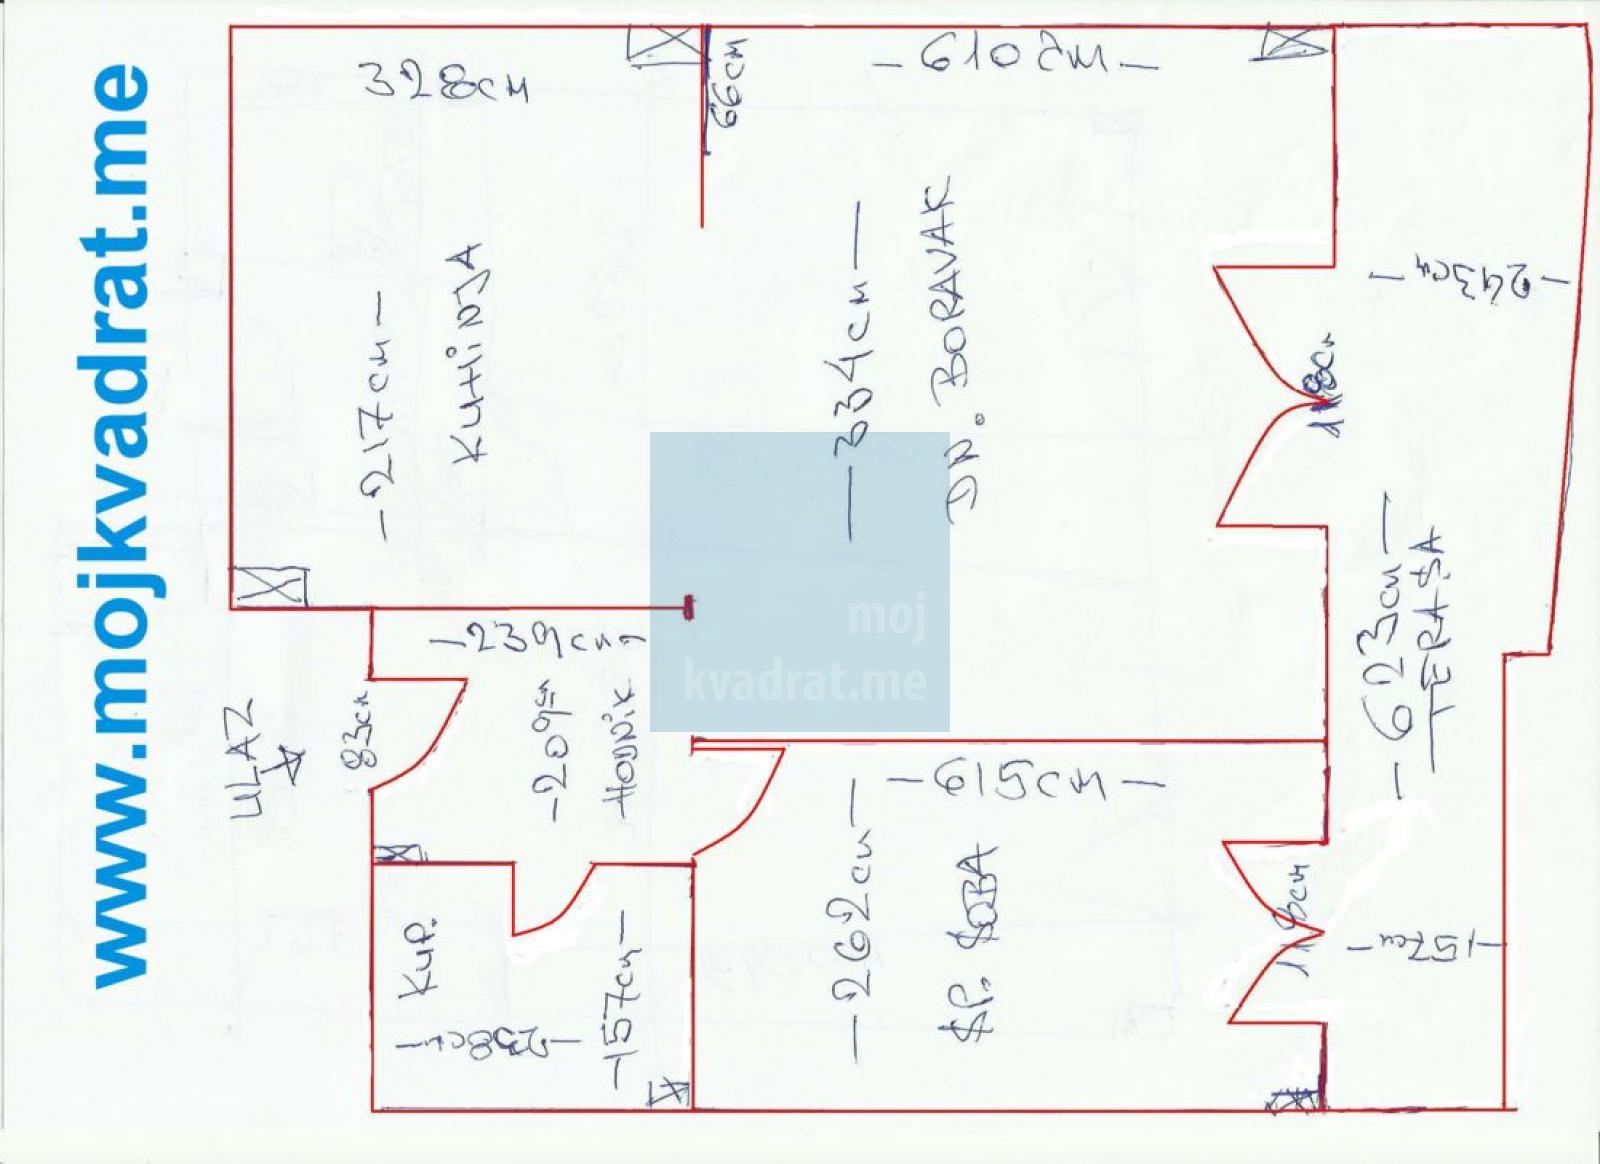 www.mojkvadrat.me
328cm
66cm
-610cm-
-217cm-
KUHINJA
-334cm-
DN. BORAVAK
-243cm-
118cm
-623cm-
TERASA
-239cm-
-209cm-
HODNIK
ULAZ
83cm
moj
kvadrat.me
-615cm-
-262cm-
SP. SOBA
118cm
-157cm-
KUP.
-238cm-
-157cm-